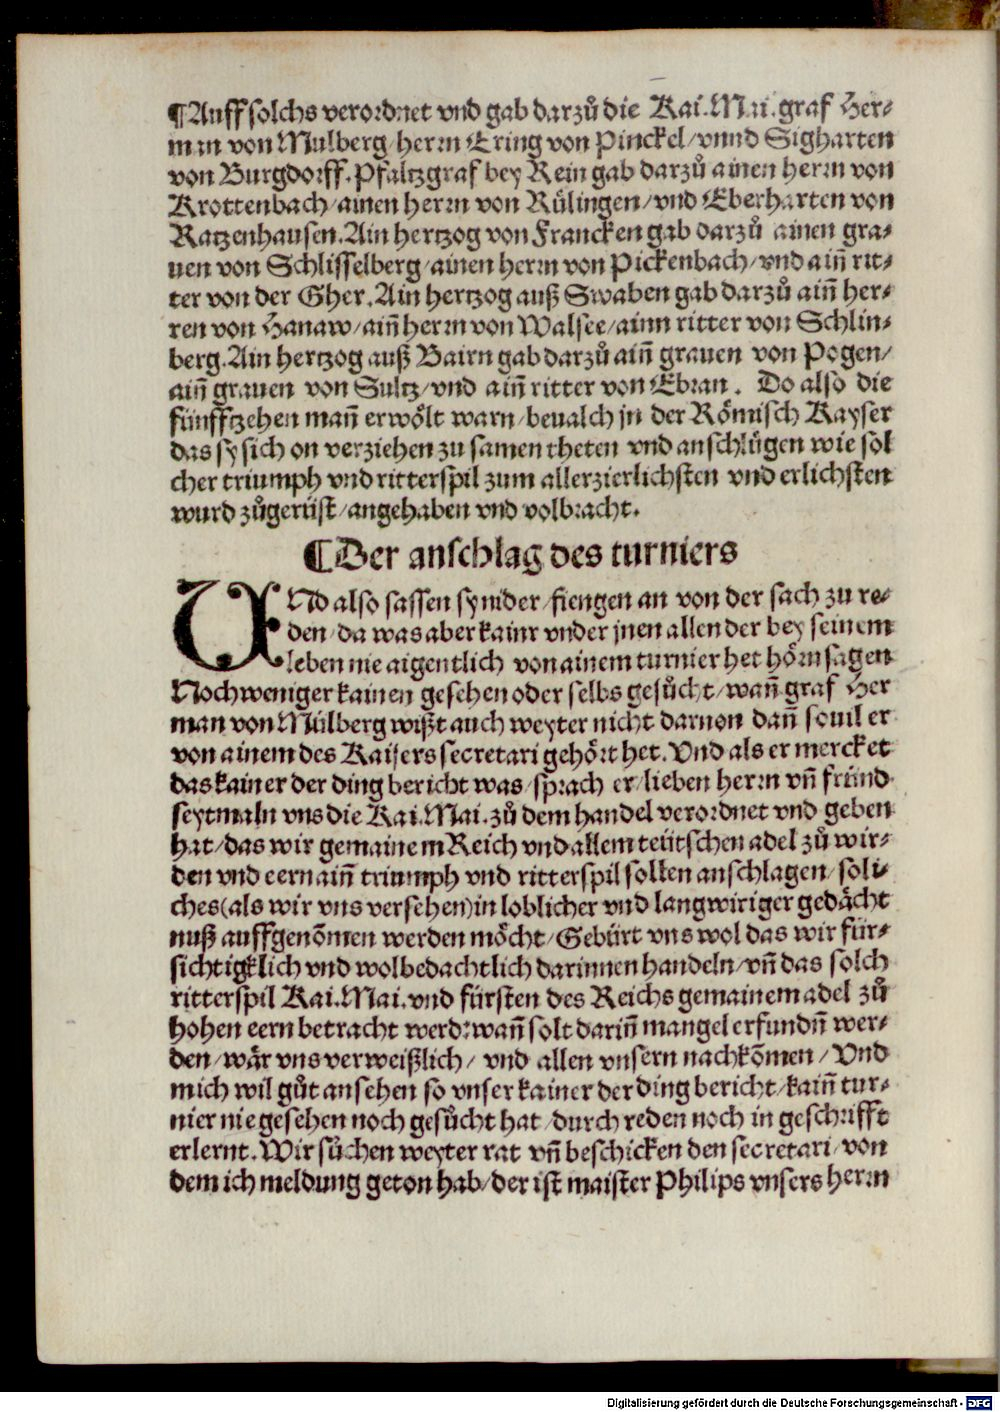 ¶Auff solchs verordnet vnd gab darzů die Kai. Mai. graf Her⸗
man von Mulberg/herrn Ering von Pinckel/vnnd Sigharten
von Burgdorff. Pfaltzgraf bey Rein gab darzů ainen herrn von
Krottenbach/ainen herrn von Rülingen/vnd Eberharten von
Ratzenhausen. Ain hertzog von Francken gab darzů ainen gra⸗
uen von Schlisselberg/ainen herrn von Pickenbach/vnd aiñ rit⸗
ter von der Gher. Ain hertzog auß Swaben gab darzů aiñ her⸗
ren von Hanaw/aiñ herrn von Walsee/ainn ritter von Schlin⸗
berg. Ain hertzog auß Bairn gab darzů aiñ grauen von Pogen/
aiñ grauen von Sultz/vnd aiñ ritter von Ebran. Do also die
fünfftzehen mañ erwölt warn/beualch jn der Römisch Kayser
das sy sich on verziehen zu samen theten vnd anschlügen wie sol
cher triumph vnd ritterspil zum allerzierlichsten vnd erlichsten
wurd zůgerüst/angehaben vnd volbracht.
¶Der anschlag des turniers
UNd also sassen sy nider/fiengen an von der sach zu re⸗
den/da was aber kainr vnder jnen allen der bey seinem
leben nie aigentlich von ainem turnier het hörn sagen
Noch weniger kainen gesehen oder selbs gesůcht/wañ graf Her
man von Mülberg wißt auch weyter nicht daruon dañ souil er
von ainem des Kaisers secretari gehört het. Vnd als er mercket
das kainer der ding bericht was/sprach er/lieben herrn vñ fründ
seytmaln vns die Kai. Mai. zů dem handel verordnet vnd geben
hat/das wir gemainem Reich vnd allem teütschen adel zů wir⸗
den vnd eern aiñ triumph vnd ritterspil sollen anschlagen/soli⸗
ches(als wir vns versehen)in loblicher vnd langwiriger gedächt
nuß auffgenõmen werden möcht/Gebürt vns wol das wir für⸗
sichtigklich vnd wolbedachtlich darinnen handeln/vñ das solch
ritterspil Kai. Mai. vnd fürsten des Reichs gemainem adel zů
hohen eern betracht werd:wañ solt dariñ mangel erfundñ wer⸗
den/wär vns verweißlich/ vnd allen vnsern nachkõmen/ Vnd
mich wil gůt ansehen so vnser kainer der ding bericht/kaiñ tur⸗
nier nie gesehen noch gesůcht hat/durch reden noch in geschrifft
erlernt. Wir sůchen weyter rat vñ beschicken den secretari/von
dem ich meldung geton hab/der ist maister Philips vnsers herrn
Digitalisierung gefördert durch die Deutsche Forschungsgemeinschaft - DFG